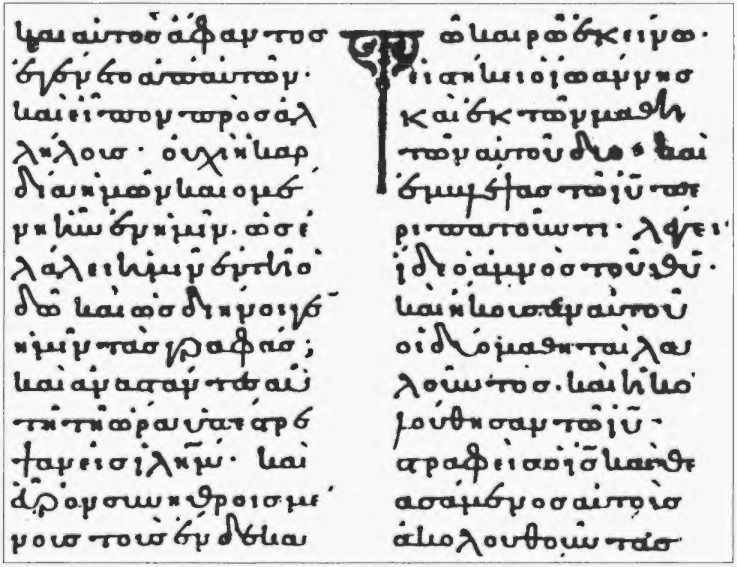 καὶ αὐτὸς ἄφαντος
ἐγένετο ἀπαὐτῶν·
καὶ εἶπον πρὸς ἀλ
λήλους· οὐχὶ ἡ καρ
δία ἡμῶν καιομέ
νη ἦν ἐν ἡμῖν· ὡς ἐ
λάλει ἡμῖν ἐν τῆ ὁ
δῶ καὶ ὡς διήνοιγε
ἡμῖν τὰς γραφάς;
καὶ ἀναστάντες αὐ
τῆ τῆ ὥρα ὑπέστρε
ψαν εἰς ἰλῆμ· καὶ
εὗρον συνηθροισμέ
νους τοὺς ἕνδεκα
Τῶ καιρῶ ἐκείνω·
εἱστήκει ὁ ἰωάννης
καὶ ἐκ τῶν μαθη
τῶν αὐτοῦ δύο· καὶ
ἐμβλέψας τῶ ἰῦ πε
ριπατοῦντι· λέγει·
ἴδε ὁ ἀμνὸς τοῦ θῦ·
καὶ ἤκουσαν αὐτοῦ
οἱ δύο μαθηταὶ λα
λοῦντος· καὶ ἠκο
λούθησαν τῶ ἰῦ·
στραφεὶς ὁ ἰς καὶ θε
ασάμενος αὐτοὺς
ἀκολουθοῦντας